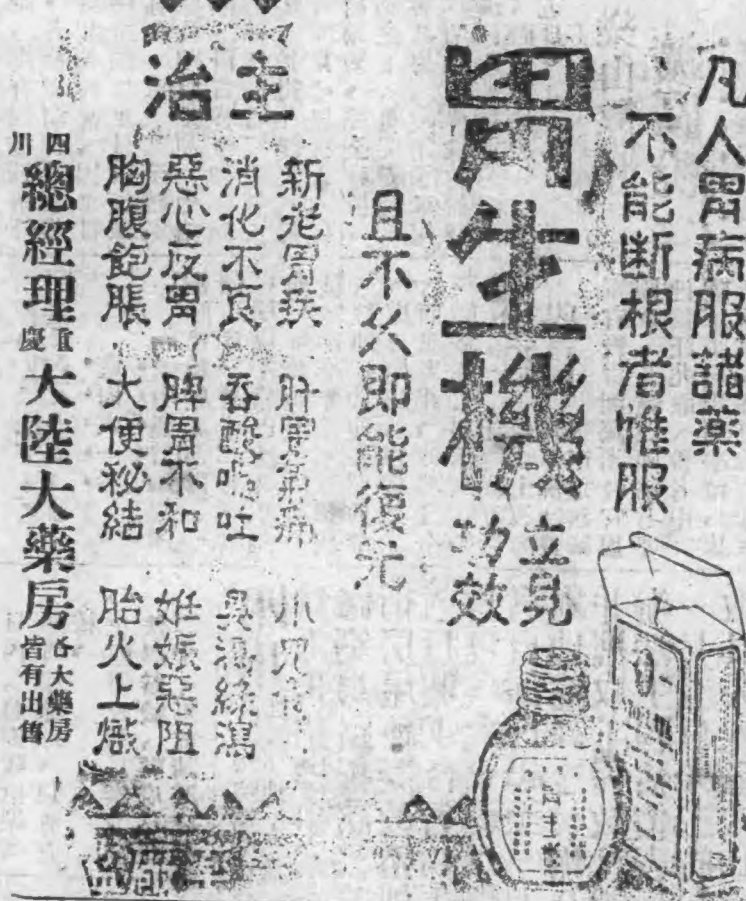 凡人胃病服諸藥
不能断根者惟服
胃生機
立見
功效
且不久即能復元
主治
新老胃疾
消化不良 吞酸嘔吐
惡心反胃 脾胃不和 妊娠惡阻
胸腹飽脹 大便秘結 胎火上熾
四川 總經理 重慶 大陸大藥房 各大藥房 皆有出售
胃生機